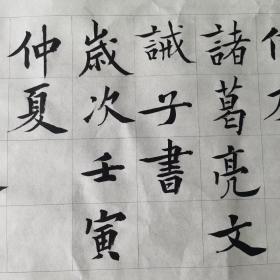 諸葛亮文
誡子書
歲次壬寅
仲夏